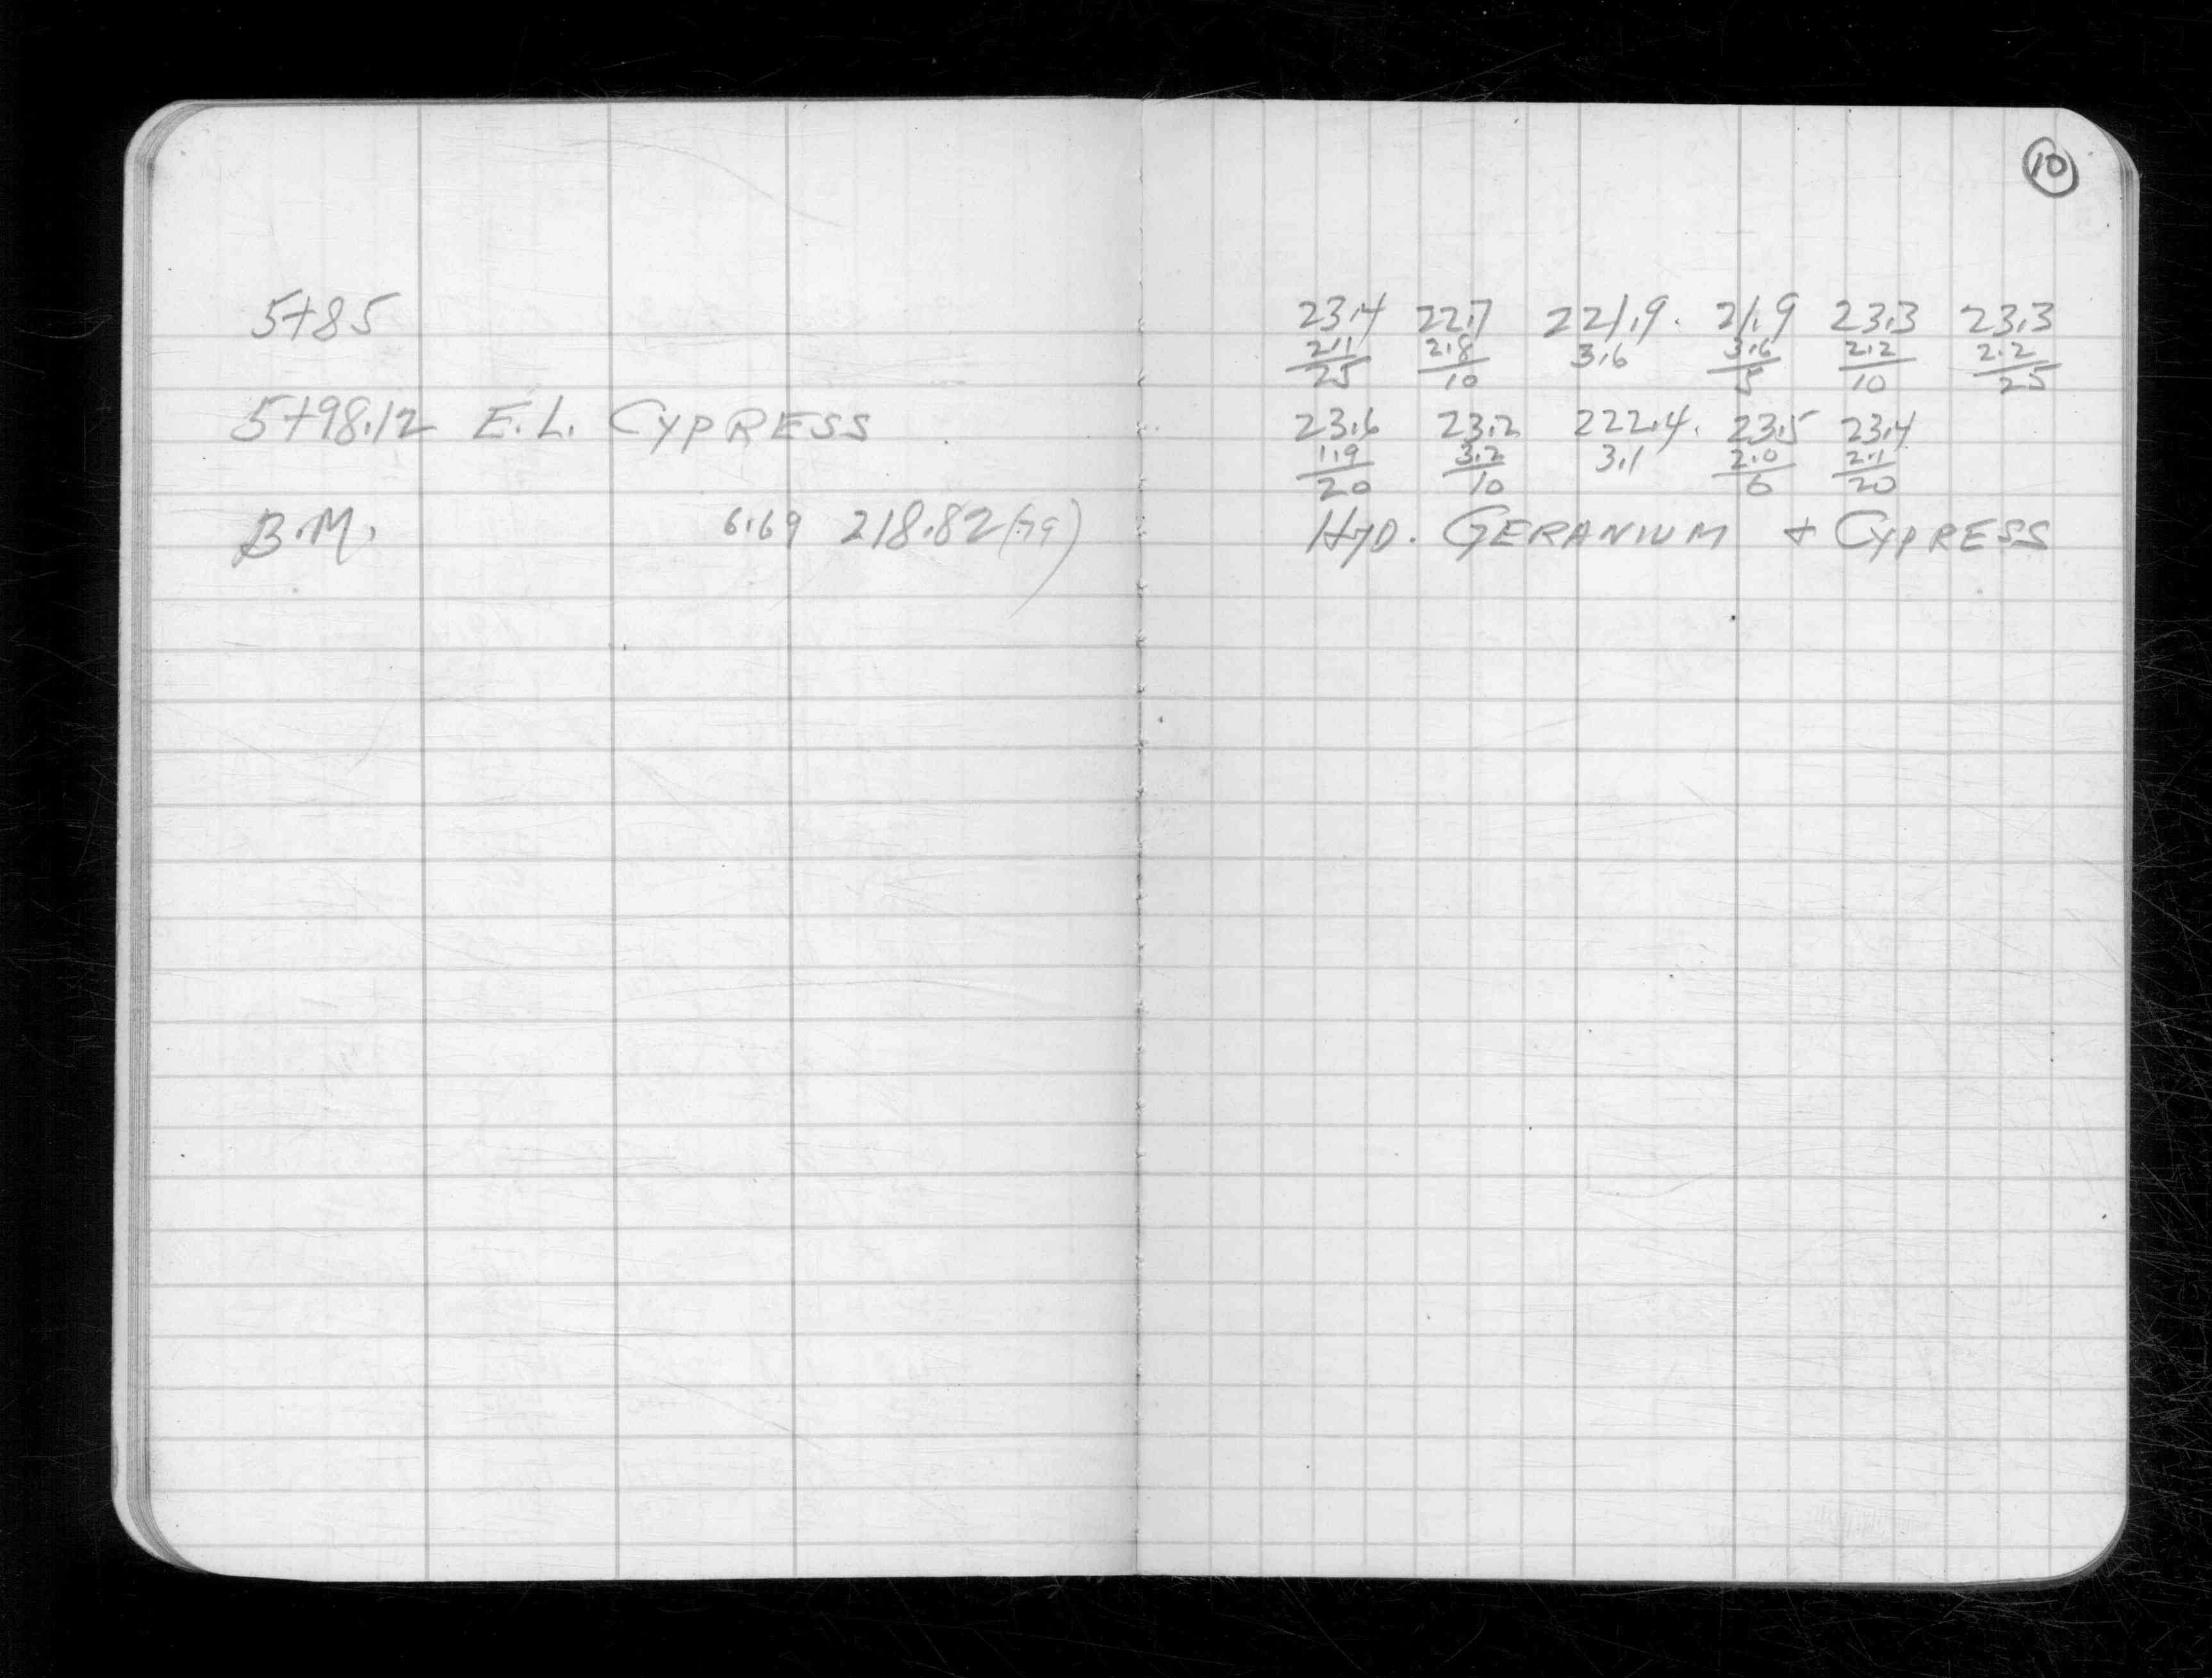 10
5+85 23.4 22.7 221.9. 21.9 23.3 23.3
2.1 2.8 3.6 3.6 2.2 2.2
25 10 5 10 25
5+98.12 E.L. CYPRESS 23.6 23.2 222.4. 23.5 23.4
1.9 3.2 3.1 2.0 2.1
20 10 6 20
B.M. 6.69 218.82 (.79) HYD. GERANIUM + CYPRESS